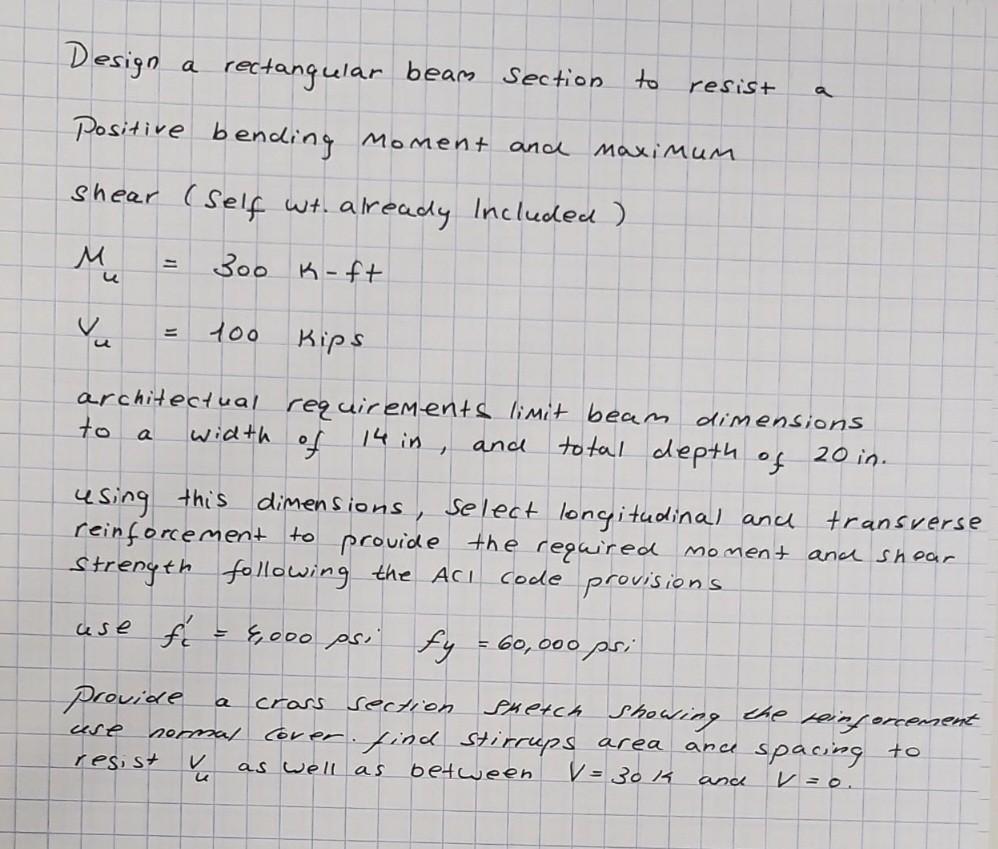 Design a rectangular beam section to resist a
Positive bending Moment and maximum
shear (Self wt. already Included)
Mu = 300 K-ft
Vu = 100 Kips
architectual requirements limit beam dimensions
to a width of 14 in, and total depth of 20 in.
using this dimensions, select longitudinal and transverse
reinforcement to provide the required moment and shear
strength following the ACI code provisions
use fc' = ,000 psi fy = 60,000 psi
provide a cross section sketch showing the reinforcement
use normal cover. find stirrups area and spacing to
resist Vu as well as between V = 30 K and V = 0.